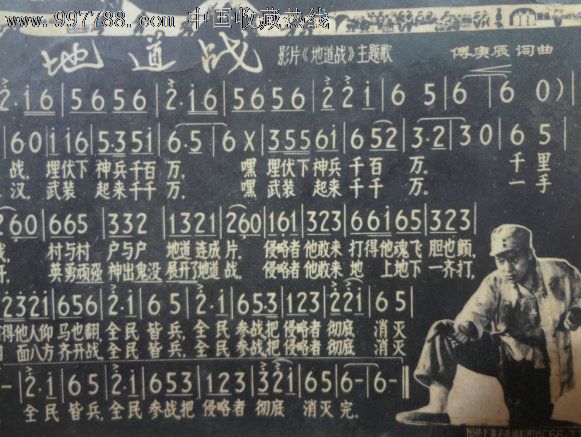 www.997788.com 中国收藏热线
地道战 影片《地道战》主题歌 傅庚辰 词曲
2·i6|5656|2·i6|5656|22i|65|6|60)|
|60|i16|535i|6·5|6X|35561|652|3·2|30|65|
战, 埋伏下 神兵千百 万, 嘿 埋伏下 神兵 千百 万。 千里
汉, 武装 起来千千 万, 嘿 武装 起来 千千 万。 一手
260|665|332|1321|260|161|323|66i65|323|
村与村 户与户 地道 连成 片, 侵略者 他敢来 打得他 魂飞 胆也颤,
英勇顽强 神出鬼没 展开了地道 战, 侵略者 他敢来 地 上地下 一齐打,
2321|656|2·i|65|2·i|653|123|22i|65|
得他 人仰 马也翻, 全民 皆兵, 全民 参战把 侵略者 彻底 消灭
面八方 齐开战, 全民 皆兵, 全民 参战把 侵略者 彻底 消灭
-|2·i|65|2·i|653|123|32i|65|6-|6-‖
全民 皆兵 全民 参战把 侵略者 彻底 消灭 完。